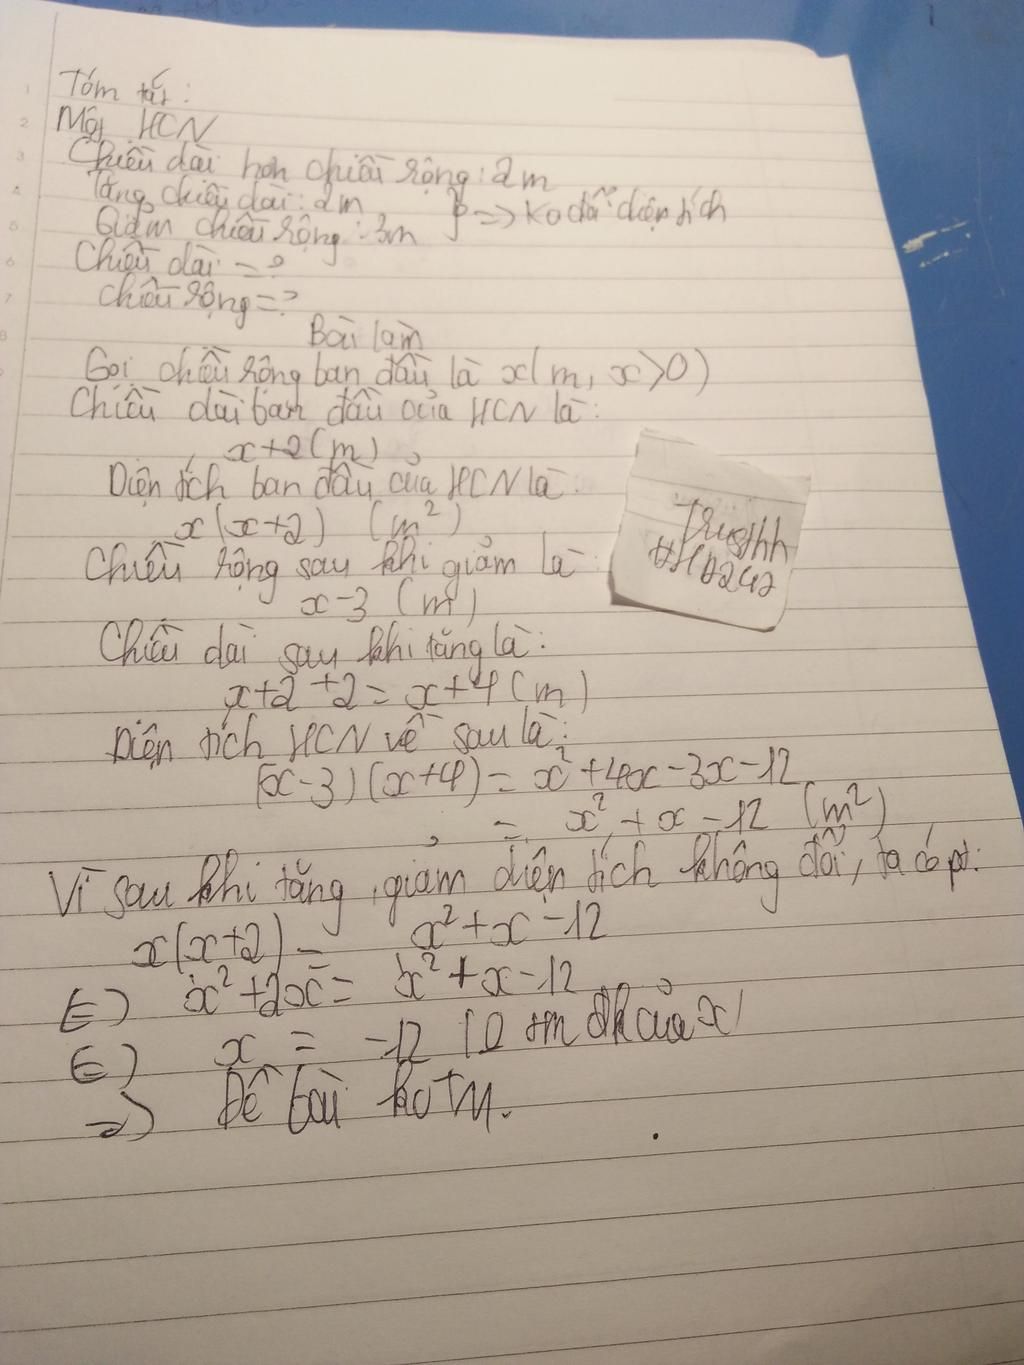 Tóm tắt:
Một HCN
Chiều dài hơn chiều rộng: 2m
Tăng chiều dài: 2m
Giảm chiều rộng: 3m } => Ko đổi diện tích
Chiều dài = ?
Chiều rộng = ?
Bài làm
Gọi chiều rộng ban đầu là x(m, x>0)
Chiều dài ban đầu của HCN là:
x+2(m)
Diện tích ban đầu của HCN là:
x(x+2) (m²)
Chiều rộng sau khi giảm là:
x-3 (m)
Chiều dài sau khi tăng là:
x+2+2=x+4(m)
Diện tích HCN về sau là:
(x-3)(x+4)=x²+4x-3x-12
= x²+x-12 (m²)
Vì sau khi tăng, giảm diện tích không đổi, ta có pt:
x(x+2)= x²+x-12
<=> x²+2x= x²+x-12
<=> x = -12 (O tm đk của x)
=> Đề bài ko TM.